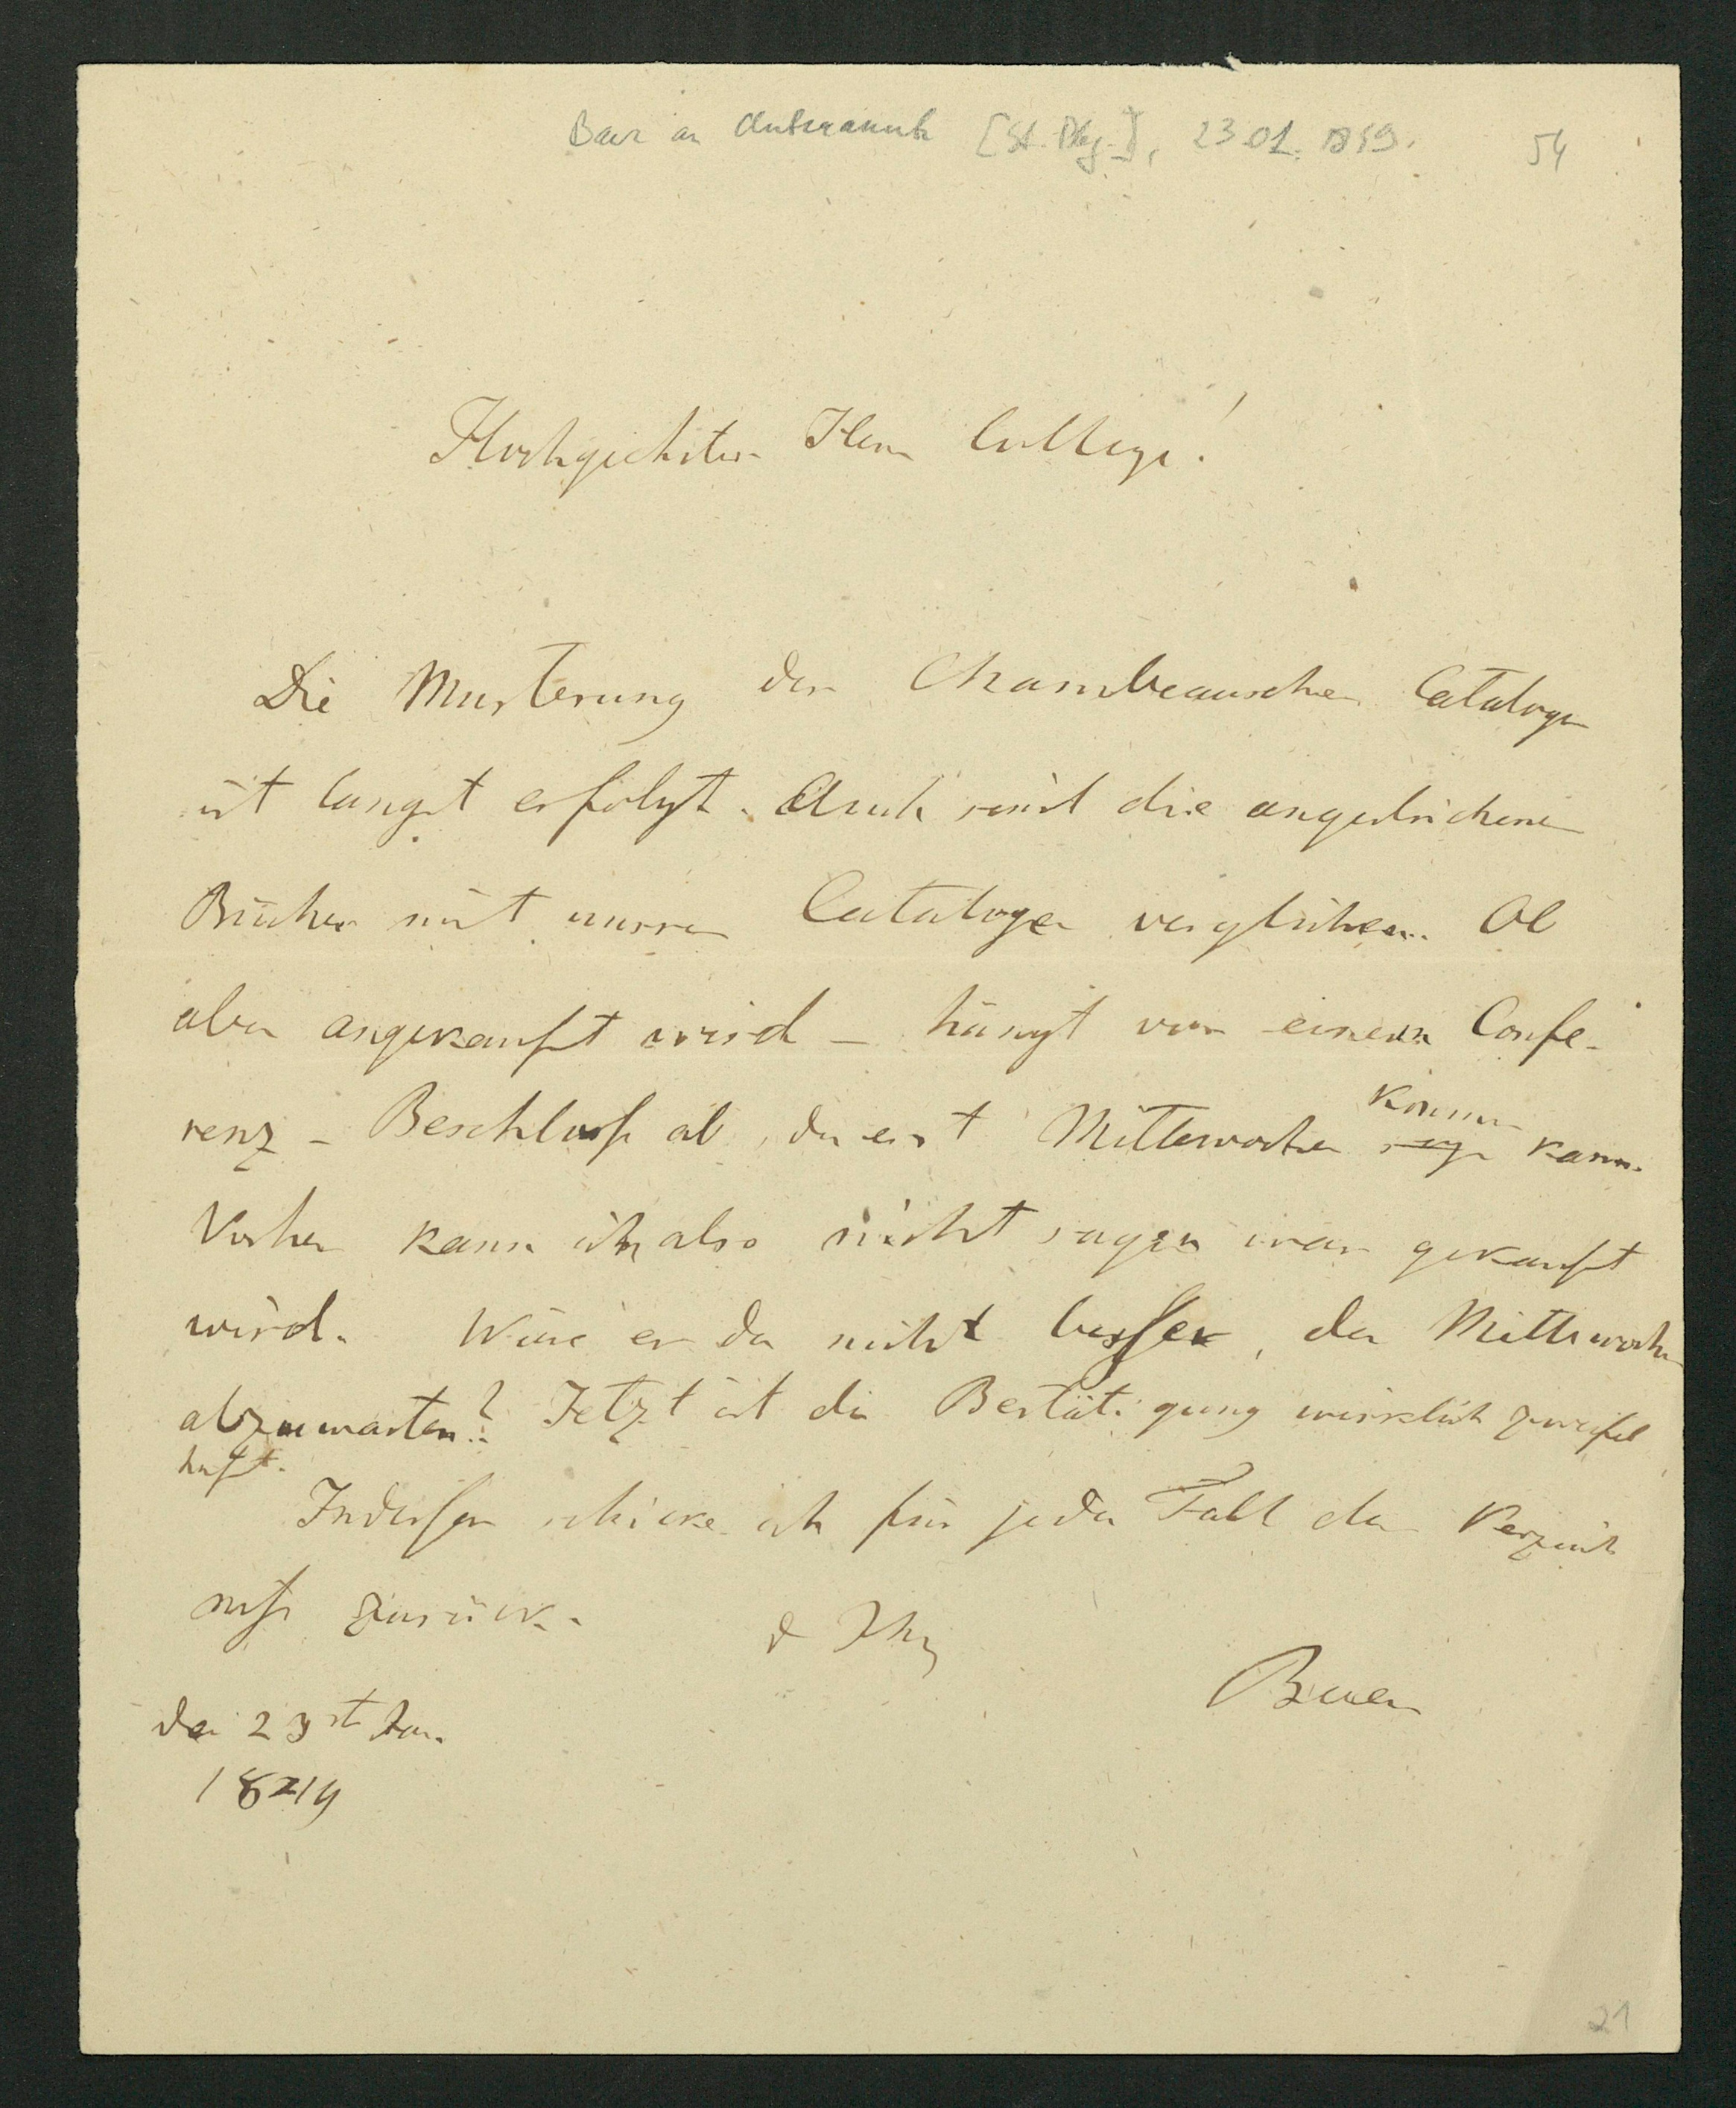 Baer an Unbekannt [St. Pbg.], 23.01.1849.
54
Hochgeehrter Herr College!
Die Musterung des Chambeauschen Catalogs
ist langst erfolgt. Auch sind die angestrichenen
Bücher mit unsren Catalogen verglichen. Ob
aber angekauft wird – hängt von einem Confe-
renz-Beschluss ab, der erst Mittewochen kommen kann.
Vorher kann ich also nicht sagen was gekauft
wird. Wäre es da nicht besser, den Mittewochen
abzuwarten? Jetzt ist die Bestätigung wirklich zweifel
haft.
Indessen schicke ich für jeden Fall das Verzeich
niss zurück.
d Ihrg
Baer
den 23st Jan.
1849
21